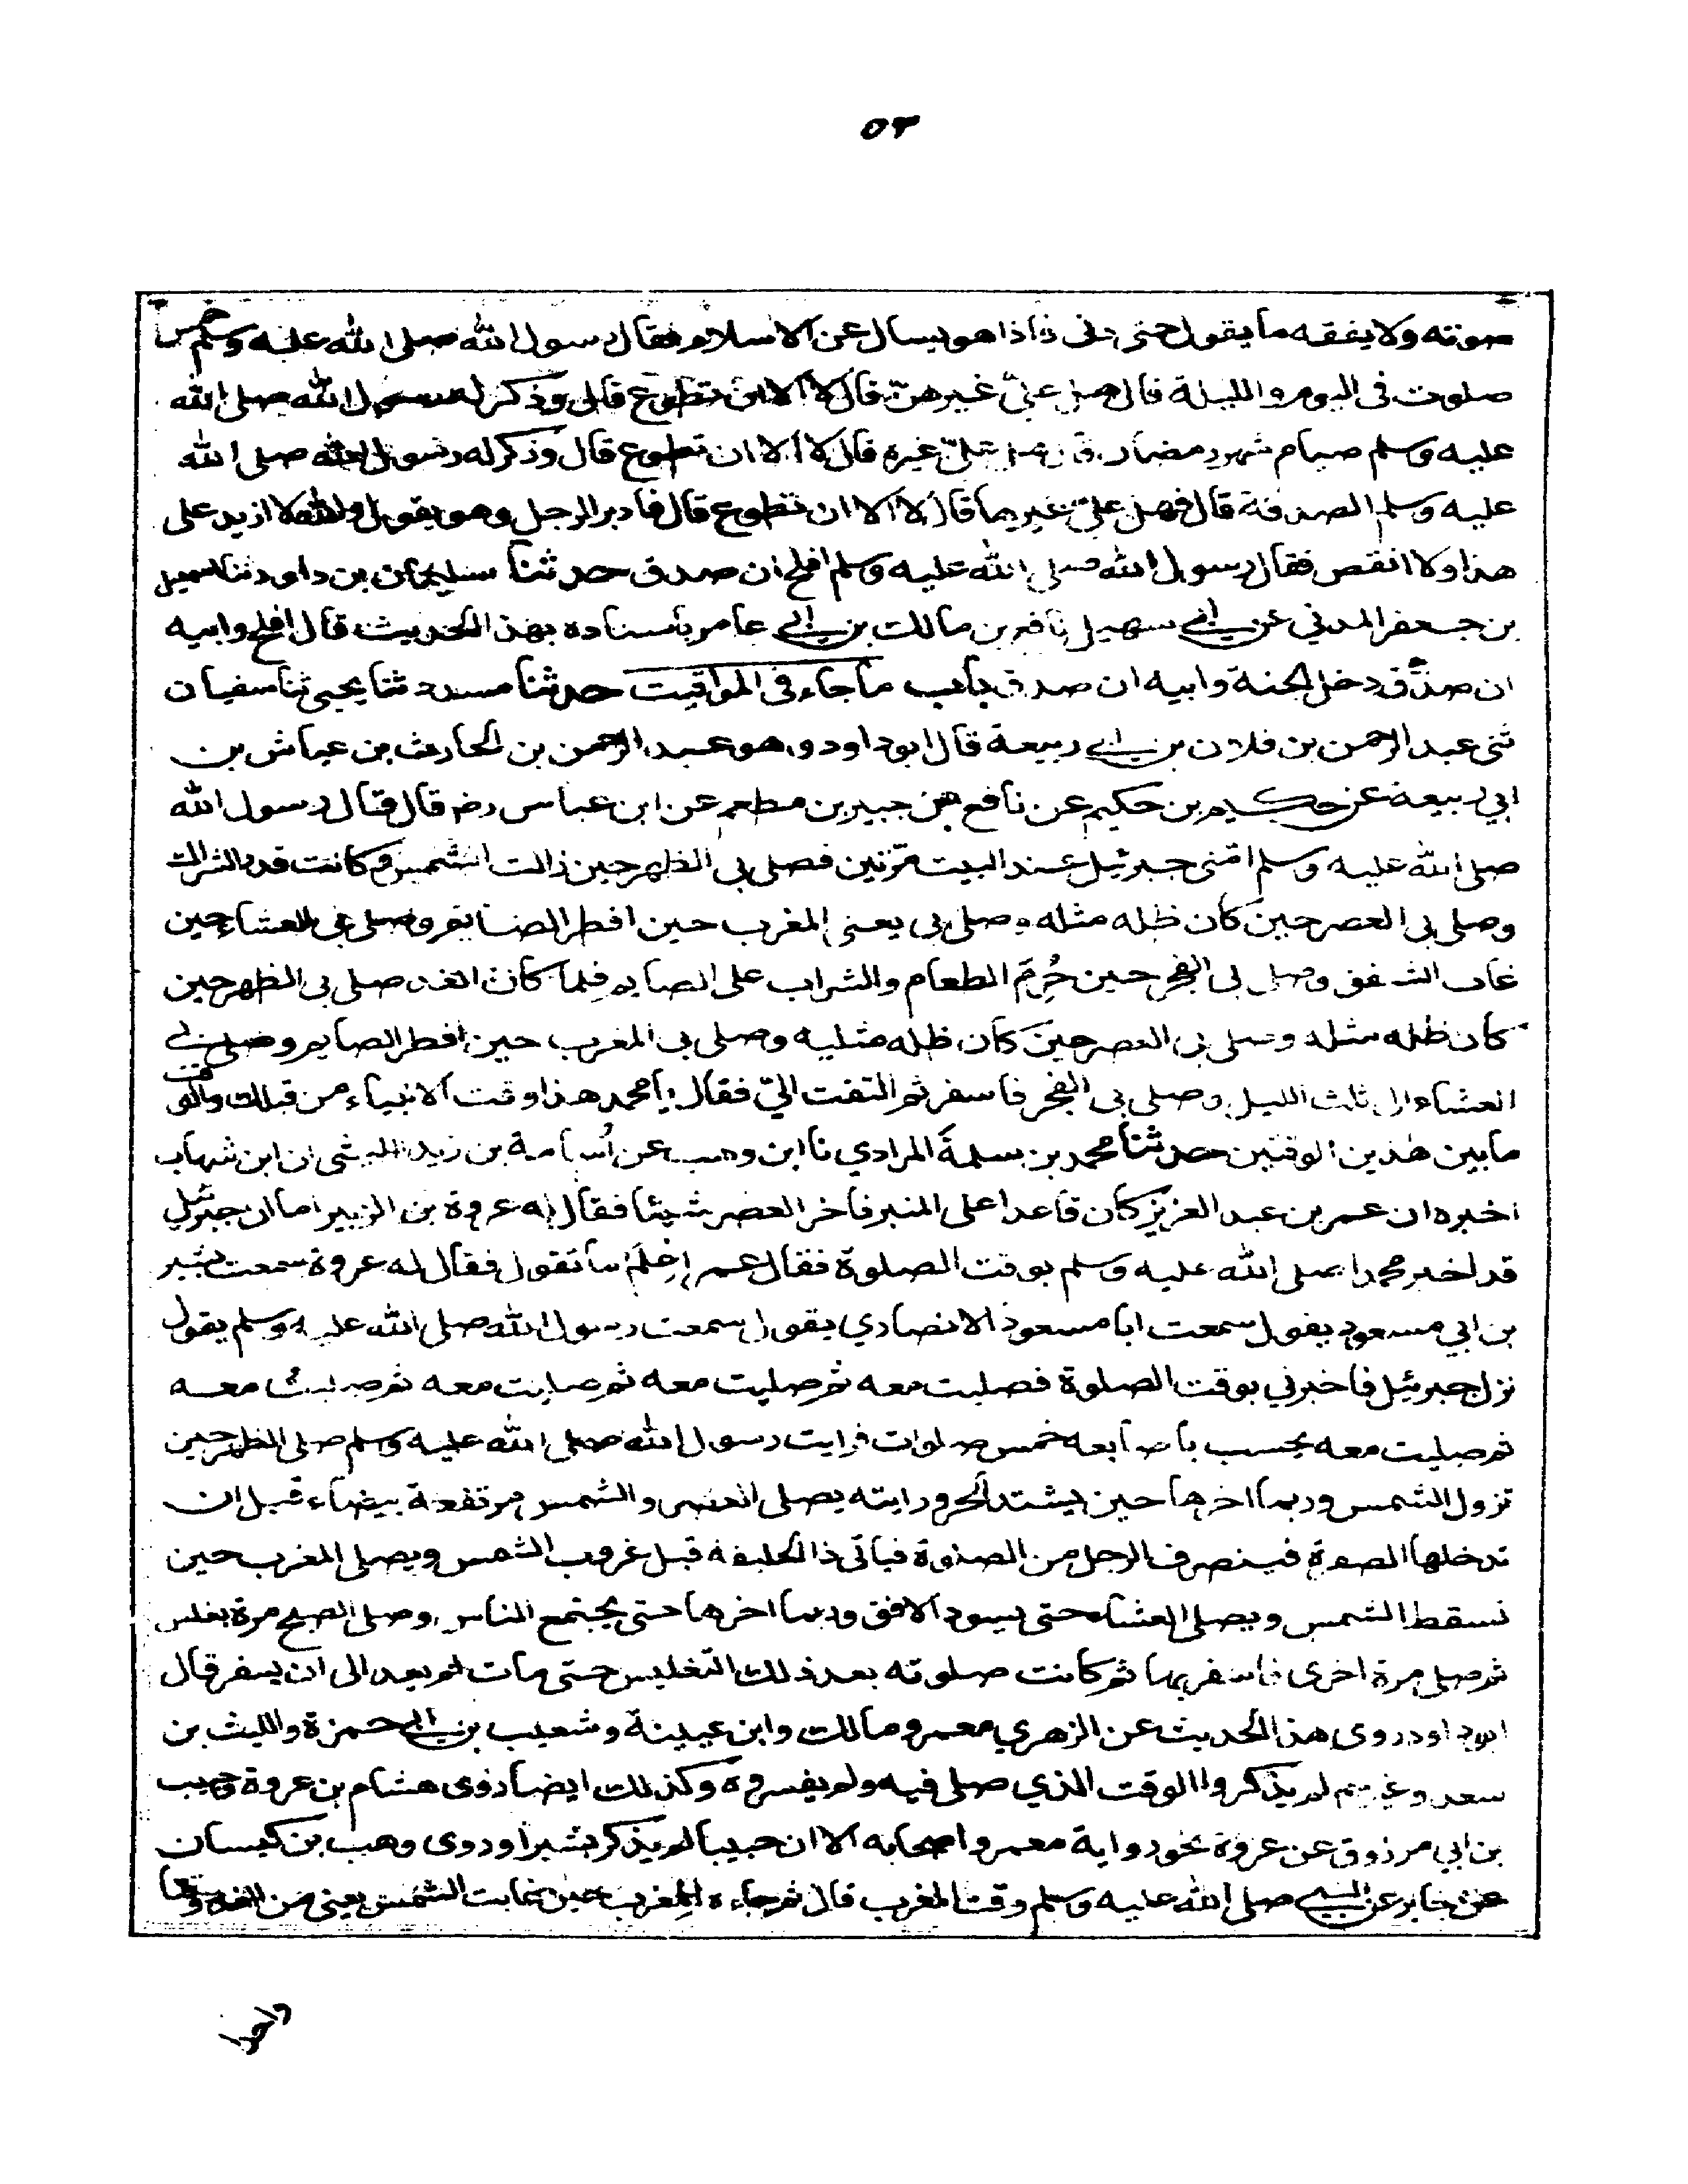 ٥٣
صوته ولا يفقه ما يقول حتى دنى فاذا هو يسال عن الاسلام فقال رسول الله صلى الله عليه وسلم خمس
صلوت فى اليوم والليلة قال هل علىّ غيرهنّ قال لا الا ان تطوع قال وذكر له رسول الله صلى الله
عليه وسلم صيام شهر رمضان قال هل علىّ غيره قال لا الا ان تطوع قال وذكر له رسول الله صلى الله
عليه وسلم الصدقة قال فهل علىّ غيرها قال لا الا ان تطوع قال فادبر الرجل وهو يقول والله لا ازيد على
هذا ولا انقص فقال رسول الله صلى الله عليه وسلم افلح ان صدق حدثنا سليمان بن داود ثنا اسمعيل
بن جعفر المدني عن ابي سهيل نافع بن مالك بن ابي عامر باسناده بهذا الحديث قال افلح وابيه
ان صدق دخل الجنة وابيه ان صدق باب ما جاء فى المواقيت حدثنا مسدد ثنا يحيى ثنا سفيان
ثنى عبد الرحمن بن فلان بن ابي ربيعة قال ابو داود وهو عبد الرحمن بن الحارث بن عياش بن
ابي ربيعة عن حكيم بن حكيم عن نافع بن جبير بن مطعم عن ابن عباس رض قال قال رسول الله
صلى الله عليه وسلم امّنى جبرئيل عند البيت مرّتين فصلى بى الظهر حين زالت الشمس وكانت قدر الشراك
وصلى بى العصر حين كان ظله مثله وصلى بى يعنى المغرب حين افطر الصايم وصلى بى العشاء حين
غاب الشفق وصلى بى الفجر حين حُرِّم الطعام والشراب على الصايم فلما كان الغد صلى بى الظهر حين
كان ظله مثله وصلى بى العصر حين كان ظله مثليه وصلى بى المغرب حين افطر الصايم وصلى بى
العشاء الى ثلث الليل وصلى بى الفجر فاسفر ثم التفت اليّ فقال يا محمد هذا وقت الانبياء من قبلك والوقت
ما بين هذين الوقتين حدثنا محمد بن سلمة المرادي نا ابن وهب عن اُسامة بن زيد الليثى ان ابن شهاب
اخبره ان عمر بن عبد العزيز كان قاعدا على المنبر فاخر العصر شيئا فقال له عروة بن الزبير اما ان جبرئيل
قد اخبر محمدا صلى الله عليه وسلم بوقت الصلوة فقال عمر اِعْلَم ما تقول فقال له عروة سمعت بشير
بن ابي مسعود يقول سمعت ابا مسعود الانصاري يقول سمعت رسول الله صلى الله عليه وسلم يقول
نزل جبرئيل فاخبرني بوقت الصلوة فصليت معه ثم صليت معه ثم صليت معه ثم صليت معه
ثم صليت معه يحسب باصابعه خمس صلوات فرايت رسول الله صلى الله عليه وسلم صلى الظهر حين
تزول الشمس وربما اخرها حين يشتد الحر ورايته يصلى العصر والشمس مرتفعة بيضاء قبل ان
تدخلها الصفرة فينصرف الرجل من الصلوة فياتى ذا الحليفة قبل غروب الشمس ويصلى المغرب حين
تسقط الشمس ويصلى العشاء حتى يسود الافق وربما اخرها حتى يجتمع الناس وصلى الصبح مرة بغلس
ثم صلى مرة اخرى فاسفر بها ثم كانت صلوته بعد ذلك التغليس حتى مات لم يعد الى ان يسفر قال
ابو داود روى هذا الحديث عن الزهري معمر ومالك وابن عيينة وشعيب بن ابي حمزة والليث بن
سعد وغيرهم لم يذكروا الوقت الذي صلى فيه ولم يفسروه وكذلك ايضا روى هشام بن عروة وحبيب
بن ابي مرزوق عن عروة نحو رواية معمر واصحابه الا ان حبيبا لم يذكر بشيرا وروى وهب بن كيسان
عن جابر عن النبي صلى الله عليه وسلم وقت المغرب قال ثم جاءه للمغرب حين غابت الشمس يعنى من الغد وقتا
واحدا